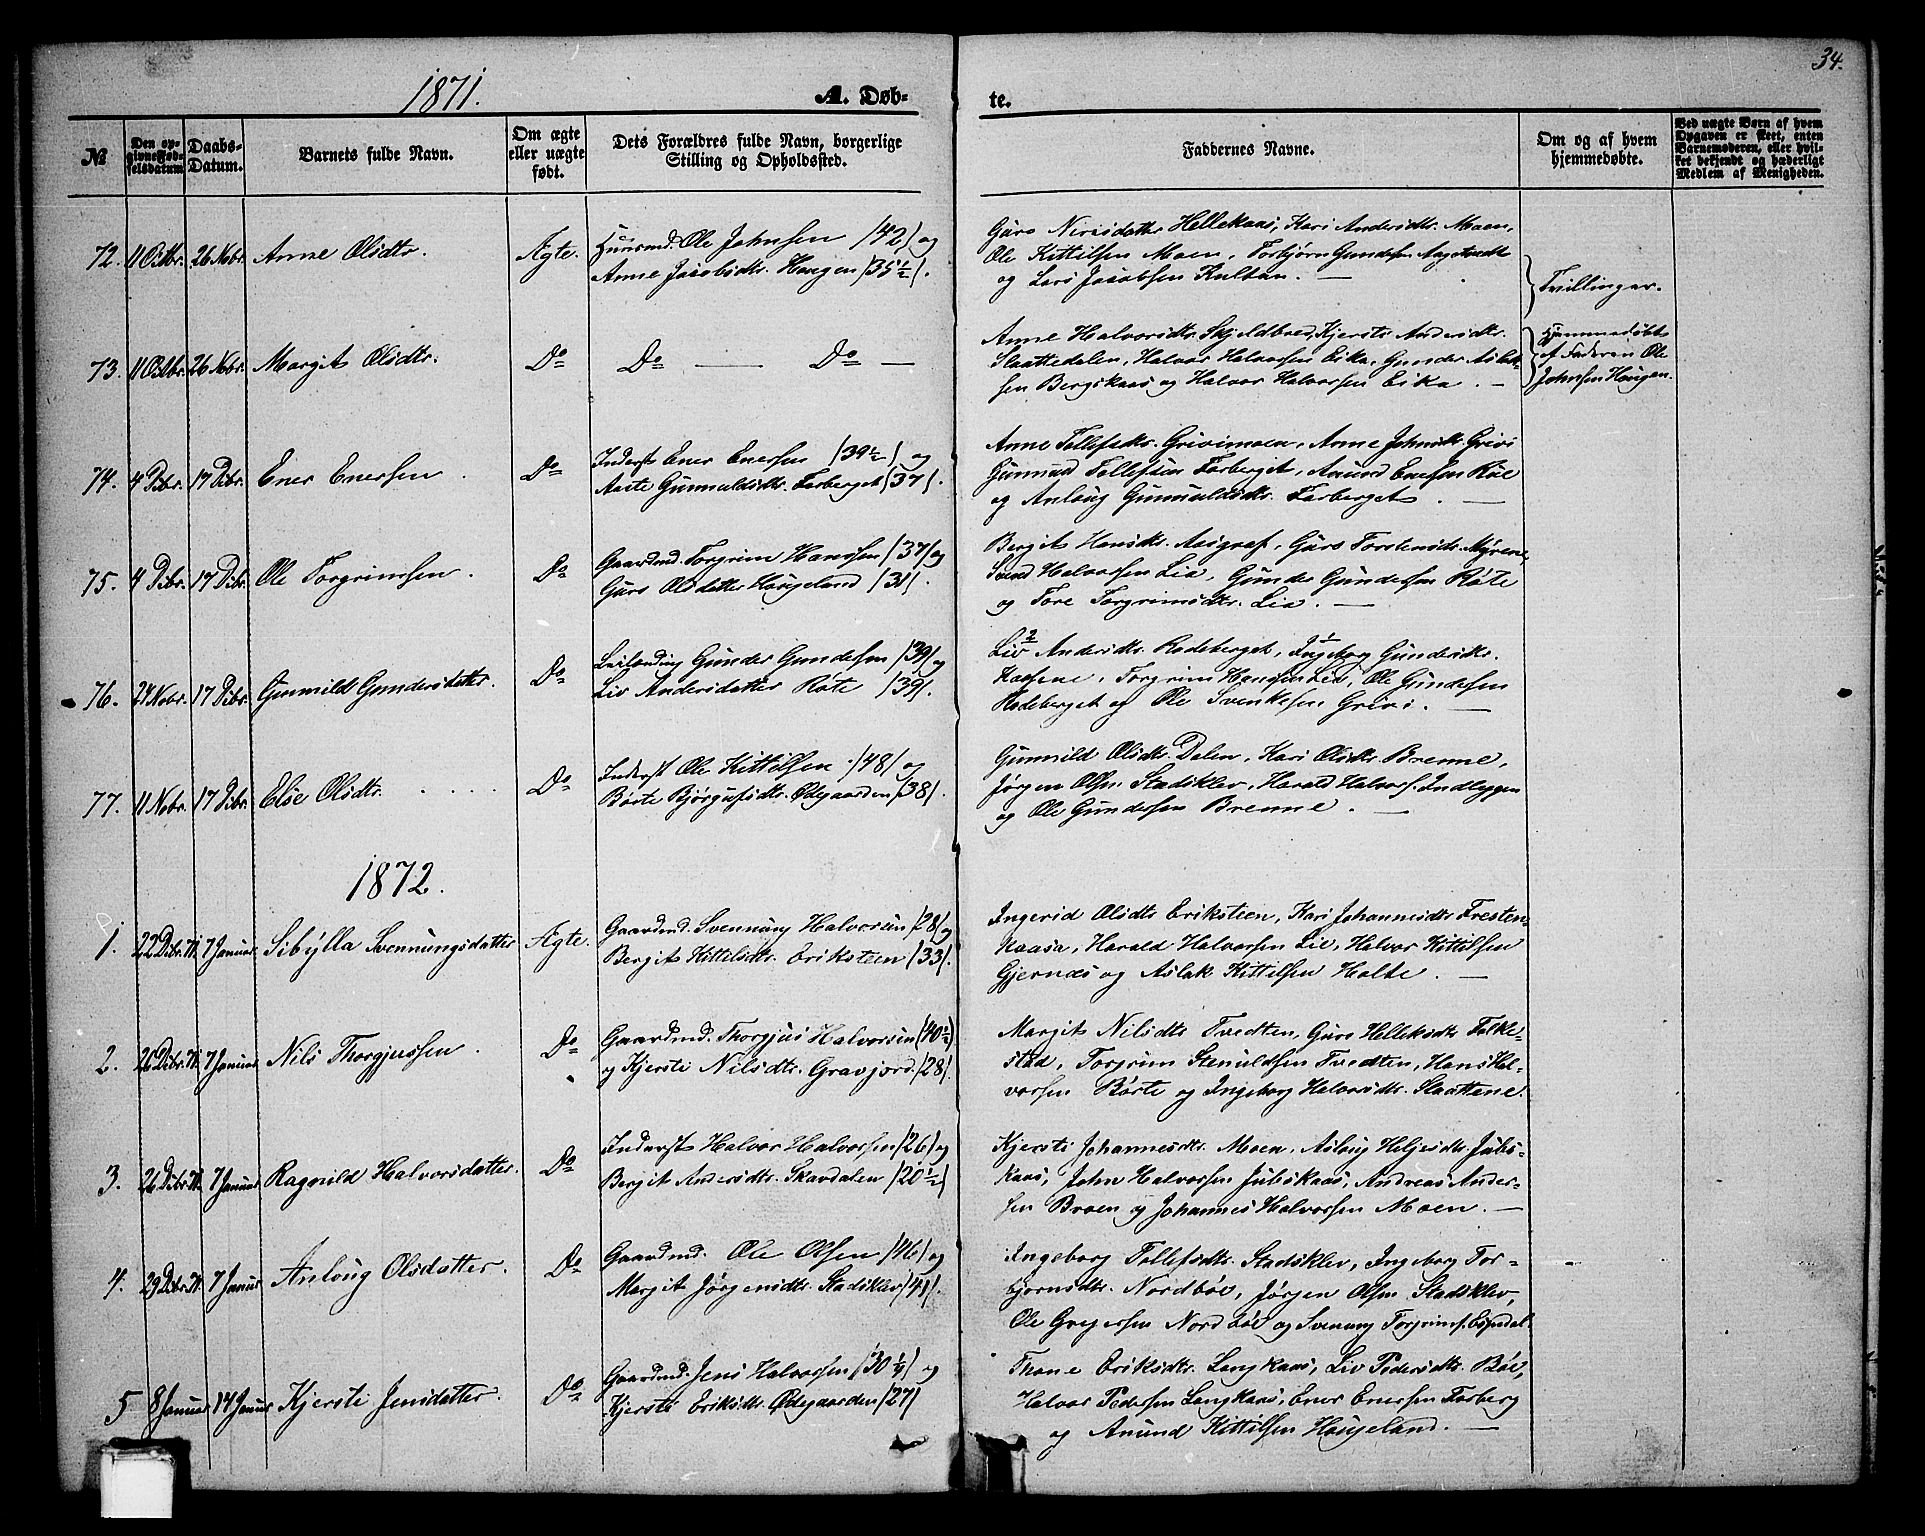 34.
1871.
A. Døb-
te.
№
Den op-
givne Fød-
selsdatum
Daabs-
Datum.
Barnets fulde Navn.
Om ægte
eller uægte
født.
Dets Forældres fulde Navn, borgerlige
Stilling og Opholdssted.
Faddernes Navne.
Om og af hvem
hjemmedøbte.
Ved uægte Børn af hvem
Opgaven er skeet, enten
Barnemoderen, eller hvil-
ket bekjendt og hæderligt
Medlem af Menigheden.
72. 11 Octbr. 26 Nobr. Anne Olsdtr. Ægte.
Huusmd. Ole Johnsen /42/ og
Anne Jacobsdtr. Haugen /35½/.
Guro Hellekaas, Kari Andersdtr. Moen,
Ole Kittilsen Moen, Torbjørn Gundersen
og Lars Jacobsen Kultan. —
Tvillinger.
73. 11 Octbr. 26 Nobr. Margit Olsdtr. Do Do — Do —
Anne Halvorsdtr. Kjersti Andersdtr.
Slaattedalen, Halvor Halvorsen Eika, Gunder Aslak-
sen Bergskaas og Halvor Halvorsen Eika. —
Hjemmedøbt
af Faderen Ole
Johnsen Haugen.
74. 4 Decbr. 17 Decbr. Ener Enersen. Do
Inderst Ener Enersen /39½/ og
Aaste Gunnuldsdtr. Farberget /37/.
Anne Tollefsdtr. Grivimoen, Anne Johnsdtr. Grivi
Gunnuld Tollefsen Farberget, Anund Enersen Røe
og Anlaug Gunnuldsdtr. Farberget. —
75. 4 Decbr. 17 Decbr. Ole Torgrimsen. Do
Gaardmd. Torgrim Hansen /37/ og
Guro Olsdatter Haugeland /31/.
Bergit Hansdtr. Guro Torstensdtr. Myrene,
Svend Halvorsen Lia, Gunder Gundersen Røte
og Tore Torgrimsdtr. Lia. —
76. 24 Nobr. 17 Decbr. Gunnild Gundersdatter. Do
Leilænding Gunder Gundersen /39/ og
Liv Andersdatter Røte /39/.
Liv Andersdtr. Rodeberget, Ingeborg Gundersdtr.
Torgrim Hansen Lia, Ole Gundersen
Rodeberget og Ole Svenkesen Grivi. —
77. 11 Nobr. 17 Decbr. Else Olsdtr. Do
Inderst Ole Kittilsen /48/ og
Børte Bjørgufsdtr. Ødegaarden /38/.
Gunnild Olsdtr. Dalen, Kari Olsdtr. Brenne,
Jørgen Olsen Stadsklev, Harald Halvors. Indleggen
og Ole Gundersen Brenne. —
1872.
1. 22 Decbr. 71. 7 Januar Sibylla Svennungsdatter Ægte.
Gaardmd. Svennung Halvorsen /28/ og
Bergit Kittelsdtr. Eriksteen /33/.
Ingerid Olsdtr Eriksteen, Kari Johannesdtr. Tresten-
kaasa, Harald Halvorsen Lie, Halvor Kittilsen
Gjernæs og Aslak Kittilsen Holte. —
2. 26 Decbr. 71. 7 Januar Nils Thorgjussen. Do
Gaardmd. Thorgjus Halvorsen /40½/
og Kjersti Nilsdtr. Gravjord /28/.
Margit Nilsdtr Tvedten, Guro Helleksdtr Folke-
stad, Torgrim Stenuldsen Tvedten, Hans Hal-
vorsen Børte og Ingeborg Halvorsdtr. Slaattene.
3. 26 Decbr. 71. 7 Januar Ragnild Halvorsdatter. Do
Inderst Halvor Halvorsen /26/ og
Bergit Andersdtr. Skardalen /20½/
Kjersti Johannesdtr. Moen, Aslaug Heljesdtr. Juls-
kaas, John Halvorsen Julskaas, Andreas Ander-
sen Broen og Johannes Halvorsen Moen. —
4. 29 Decbr. 71. 7 Januar Anlaug Olsdatter. Do
Gaardmd. Ole Olsen /46/ og
Margit Jørgensdtr. Stadsklev /41/.
Ingeborg Tollefsdtr. Stadsklev, Ingeborg Tor-
bjørnsdtr. Nordbøe, Jørgen Olsen Stadsklev,
Ole Gregersen Nordbøe og Svenung Torgrims.
5 8 Januar 14 Januar Kjersti Jensdatter. Do
Gaardmd. Jens Halvorsen /30¼/ og
Kjersti Eriksdtr. Ødegaarden /27/
Thone Eriksdtr. Langkaas, Liv Pedersdtr. Bøe,
Halvor Pedersen Langkaas, Ener Enersen Farberg
og Anund Kittilsen Haugeland. —